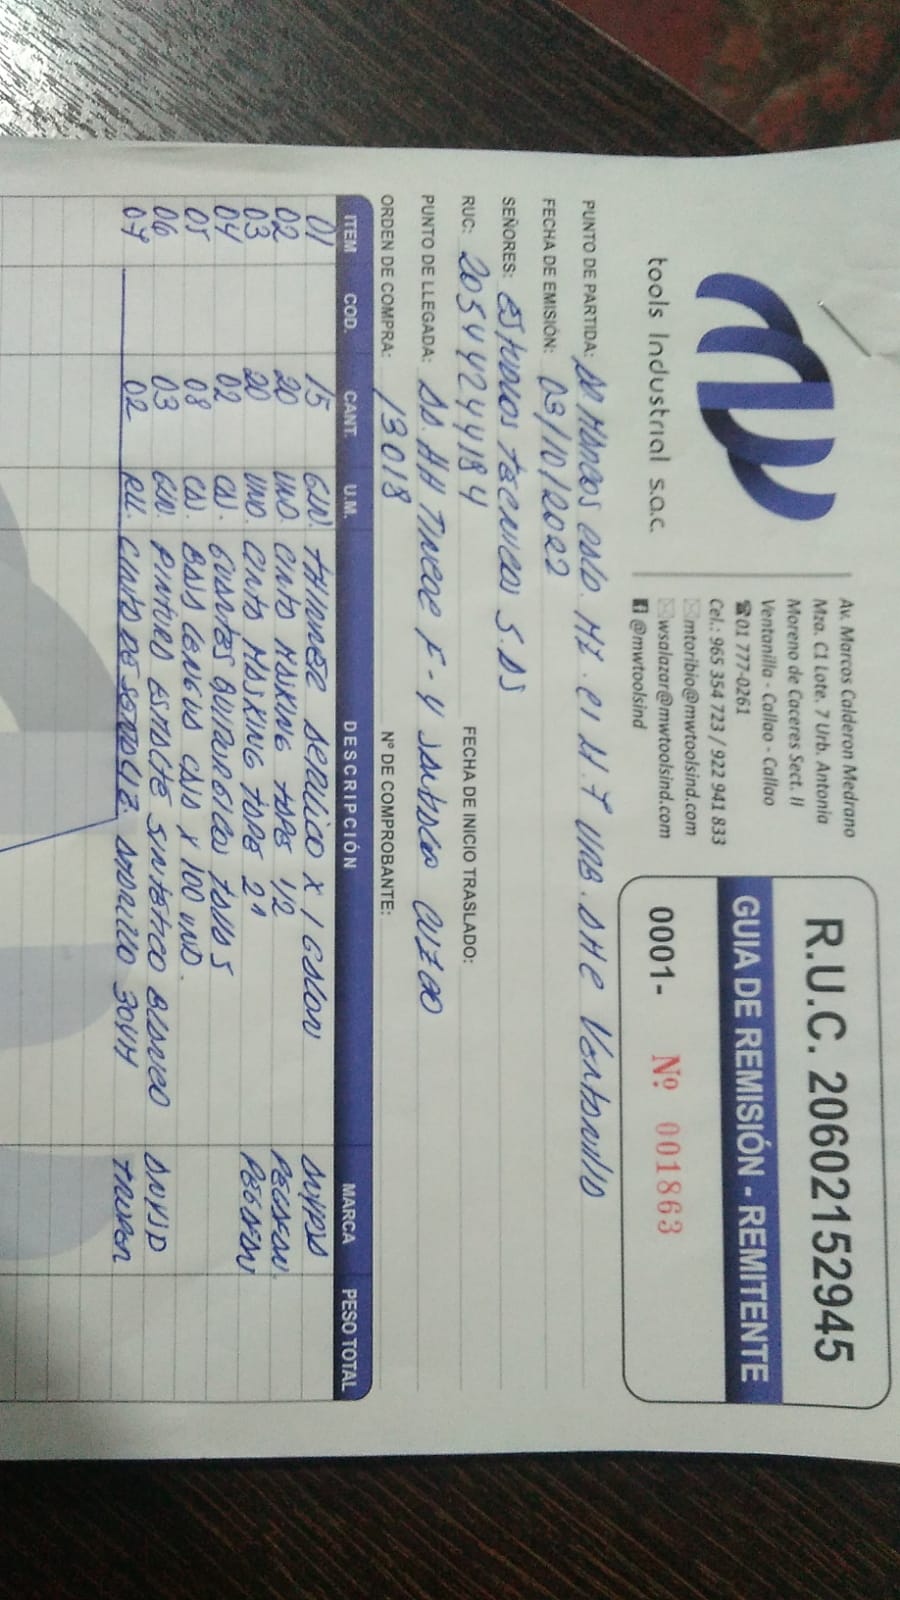 MW
tools Industrial s.a.c.
Av. Marcos Calderon Medrano
Mza. C1 Lote. 7 Urb. Antonia
Moreno de Caceres Sect. II
Ventanilla - Callao - Callao
☎01 777-0261
Cel.: 965 354 723 / 922 941 833
✉mtoribio@mwtoolsind.com
✉wsalazar@mwtoolsind.com
@mwtoolsind
R.U.C. 20602152945
GUIA DE REMISIÓN - REMITENTE
0001- Nº 001863
PUNTO DE PARTIDA: AV. MARCOS CALD. MZ. C1 LT. 7 URB. AMC Ventanilla
FECHA DE EMISIÓN: 03/10/2022
SEÑORES: Tecnicos S.A
RUC: 20544244184 FECHA DE INICIO TRASLADO:
PUNTO DE LLEGADA: AA. HH F-4 CUZCO
ORDEN DE COMPRA: 13018 Nº DE COMPROBANTE:
ITEM COD. CANT. U.M. DESCRIPCIÓN MARCA PESO TOTAL
01 15 GLN. THINNER ACRILICO X 1 GALON
02 20 UND. CINTA MASKING TAPE 1/2 PEGAFAN
03 20 UND. CINTA MASKING TAPE 2" PEGAFAN
04 02 CAJ. GUANTES QUIRURGICO TALLA S
05 08 CAJ. BAJA LENGUA CAJA X 100 UND.
06 03 GLN. PINTURA ESMALTE SINTETICO BLANCO
07 02 RLL. CINTA DE SEÑALIZ. AMARILLO TRUPER